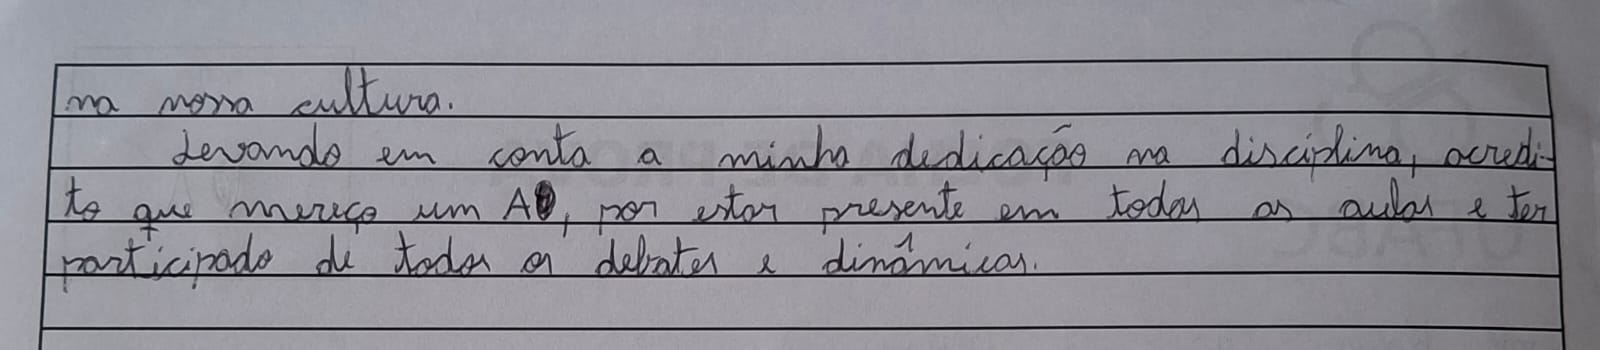 na nossa cultura.
Levando em conta a minha dedicação na disciplina, acredi-
to que mereço um A, por estar presente em todas as aulas e ter
participado de todos os debates e dinâmicas.